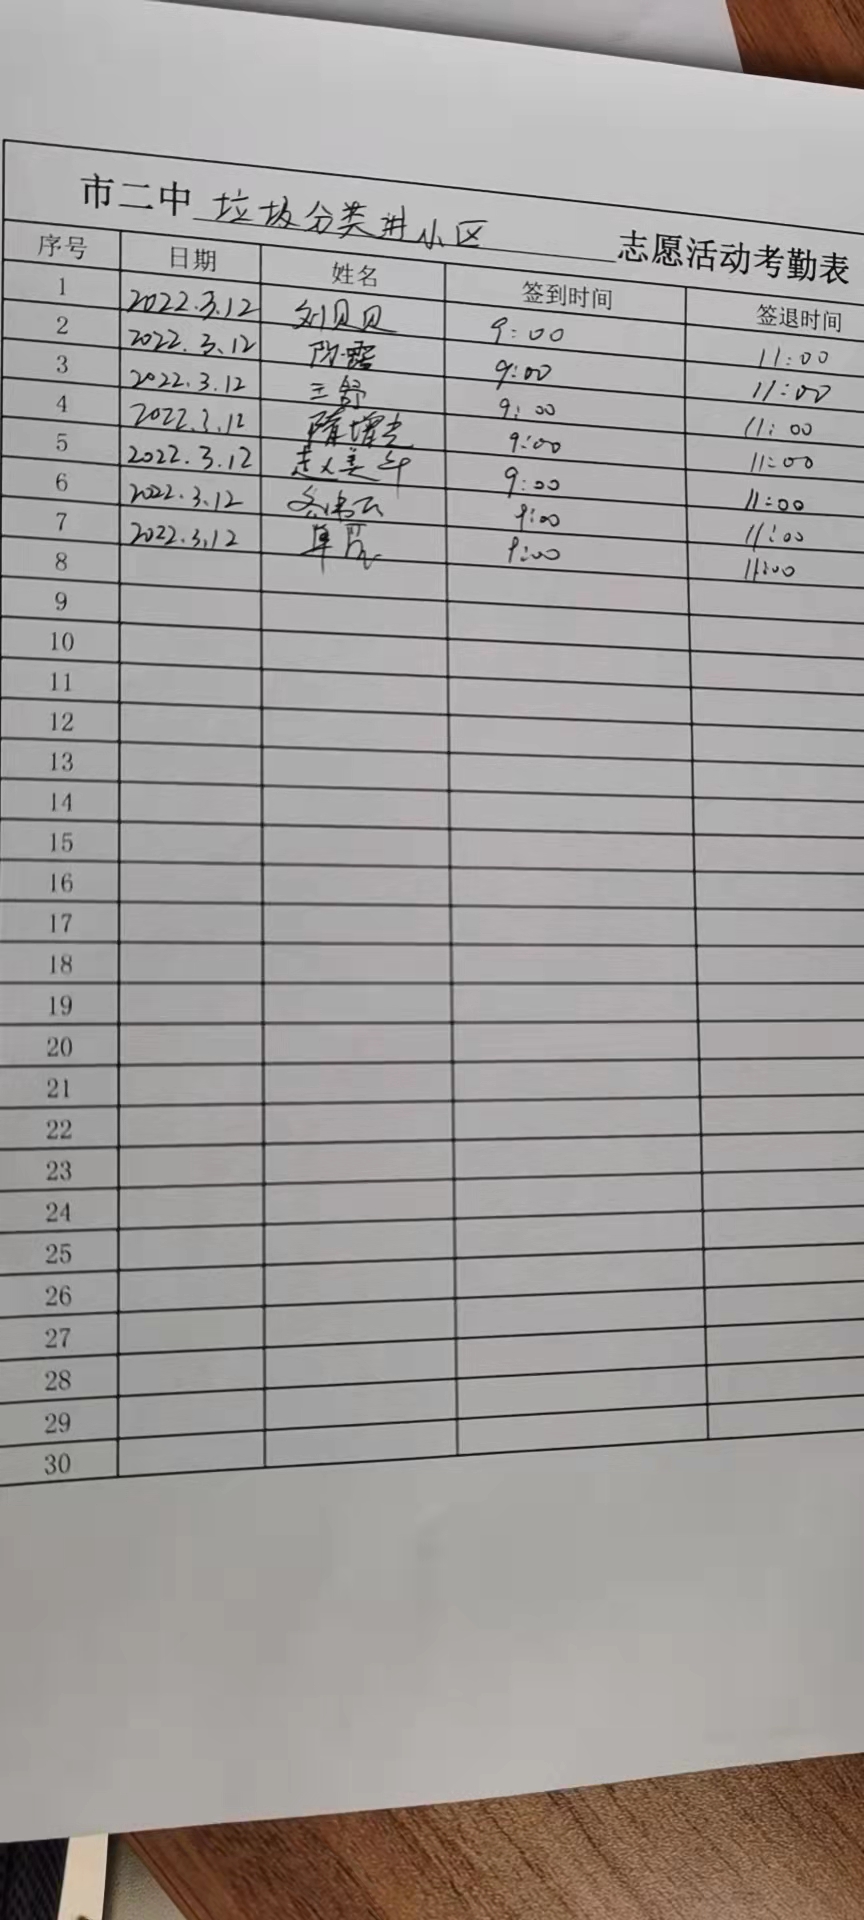 市二中 垃圾分类进小区 志愿活动考勤表
序号 日期 姓名 签到时间 签退时间
1 2022.3.12 刘贝贝 9:00 11:00
2 2022.3.12 9:00 11:00
3 2022.3.12 王舒 9:00 11:00
4 2022.3.12 隋增志 9:00 11:00
5 2022.3.12 赵美华 9:00 11:00
6 2022.3.12 9:00 11:00
7 2022.3.12 9:00 11:00
8
9
10
11
12
13
14
15
16
17
18
19
20
21
22
23
24
25
26
27
28
29
30